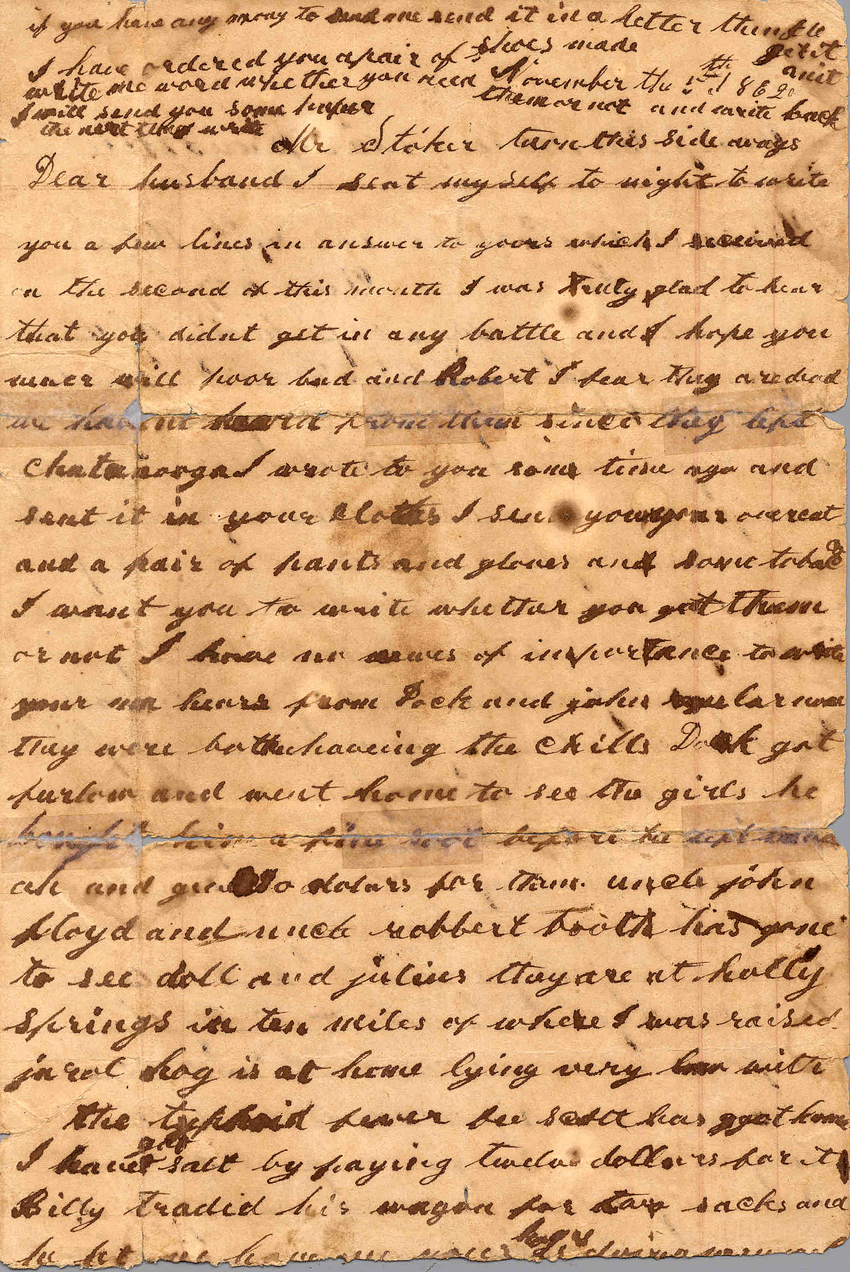 if you have any mony to send me send it in a letter then Ile
get it
I have ordered you a pair of shoes made
write me word whether you need them or not and write back
November the 1st 1862
I will send you some paper
the next time I write
Mr Stoker turn this side ways
Dear husband I seat myself to night to write
you a few lines in answer to yours which I received
on the second of this month I was truly glad to hear
that you didnt get in any battle and I hope you
never will poor bud and Robert I fear they are dead
we havent heard from them since they left
Chatanooga I wrote to you some time ago and
sent it in your cloths I send you your overcoat
and a pair of pants and gloves and some tobac
I want you to write whether you got them
or not I have no newes of importance to write
your ma hears from Dock and john regular now
they were both haveing the chills Dock got
furlow and went home to see the girls he
bought him a fine soot before he left
oh and give dolars for them uncle john
floyd and uncle robbert booth has gone
to see doll and julius they are at holly
springs in ten miles of where I was raised
jarol hog is at home lying very low with
the typhoid fever bee scott has got home
I have got salt by paying twelve dollars for it
Billy tradid his wagon for sacks and
he let me have hogs is doing